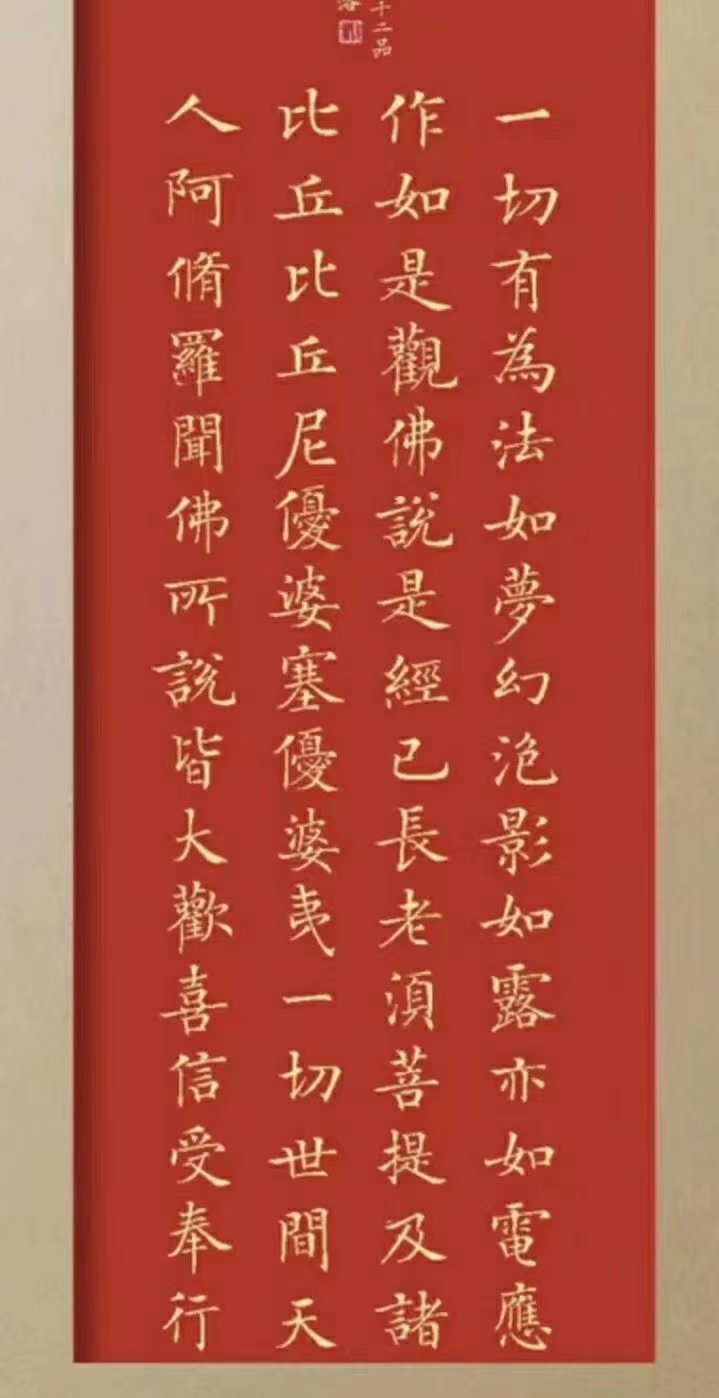 十二品
一切有為法如夢幻泡影如露亦如電應
作如是觀佛說是經已長老湏菩提及諸
比丘比丘尼優婆塞優婆夷一切世間天
人阿脩羅聞佛所說皆大歡喜信受奉行